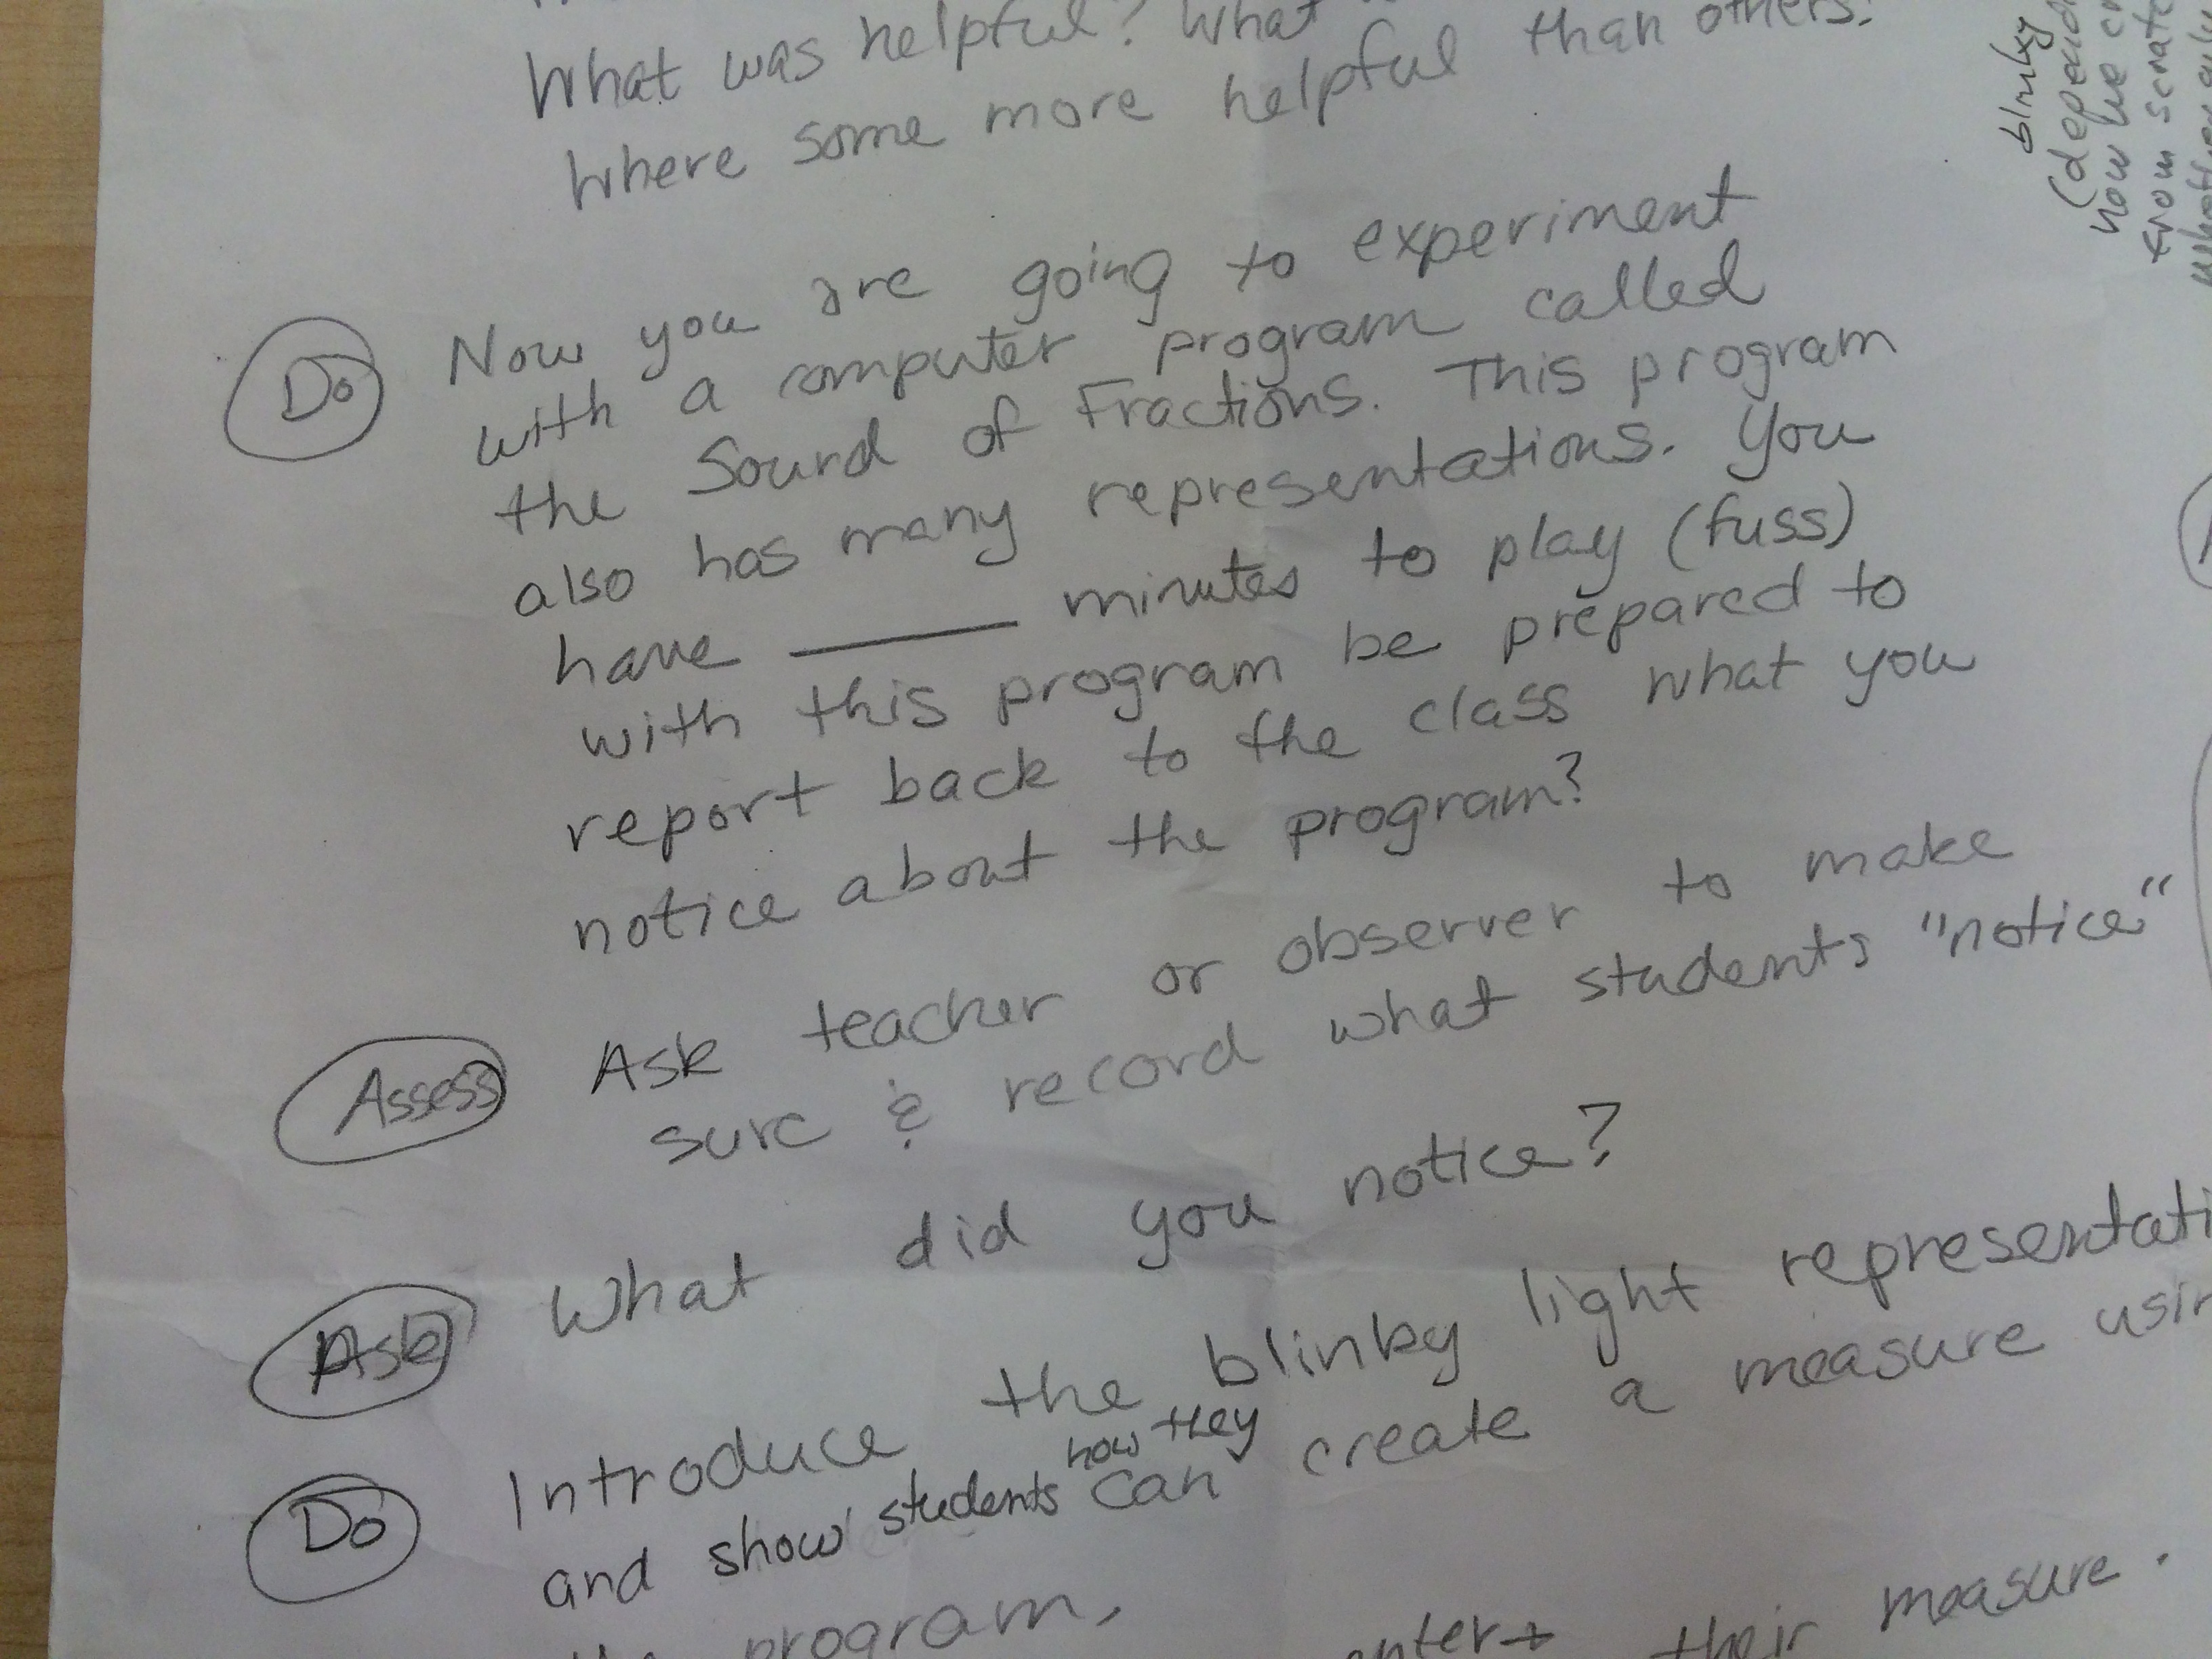 What was helpful? What
Where some more helpful than others.
Do Now you are going to experiment
with a computer program called
the Sound of Fractions. This program
also has many representations. You
have ______ minutes to play (fuss)
with this program be prepared to
report back to the class what you
notice about the program?
Assess Ask teacher or observer to make
sure & record what students "notice"
Ask What did you notice?
Do Introduce the blinky light representati
how they
and show students can create a measure usin
program,
enter their measure.
blinky
(depend
how we
from